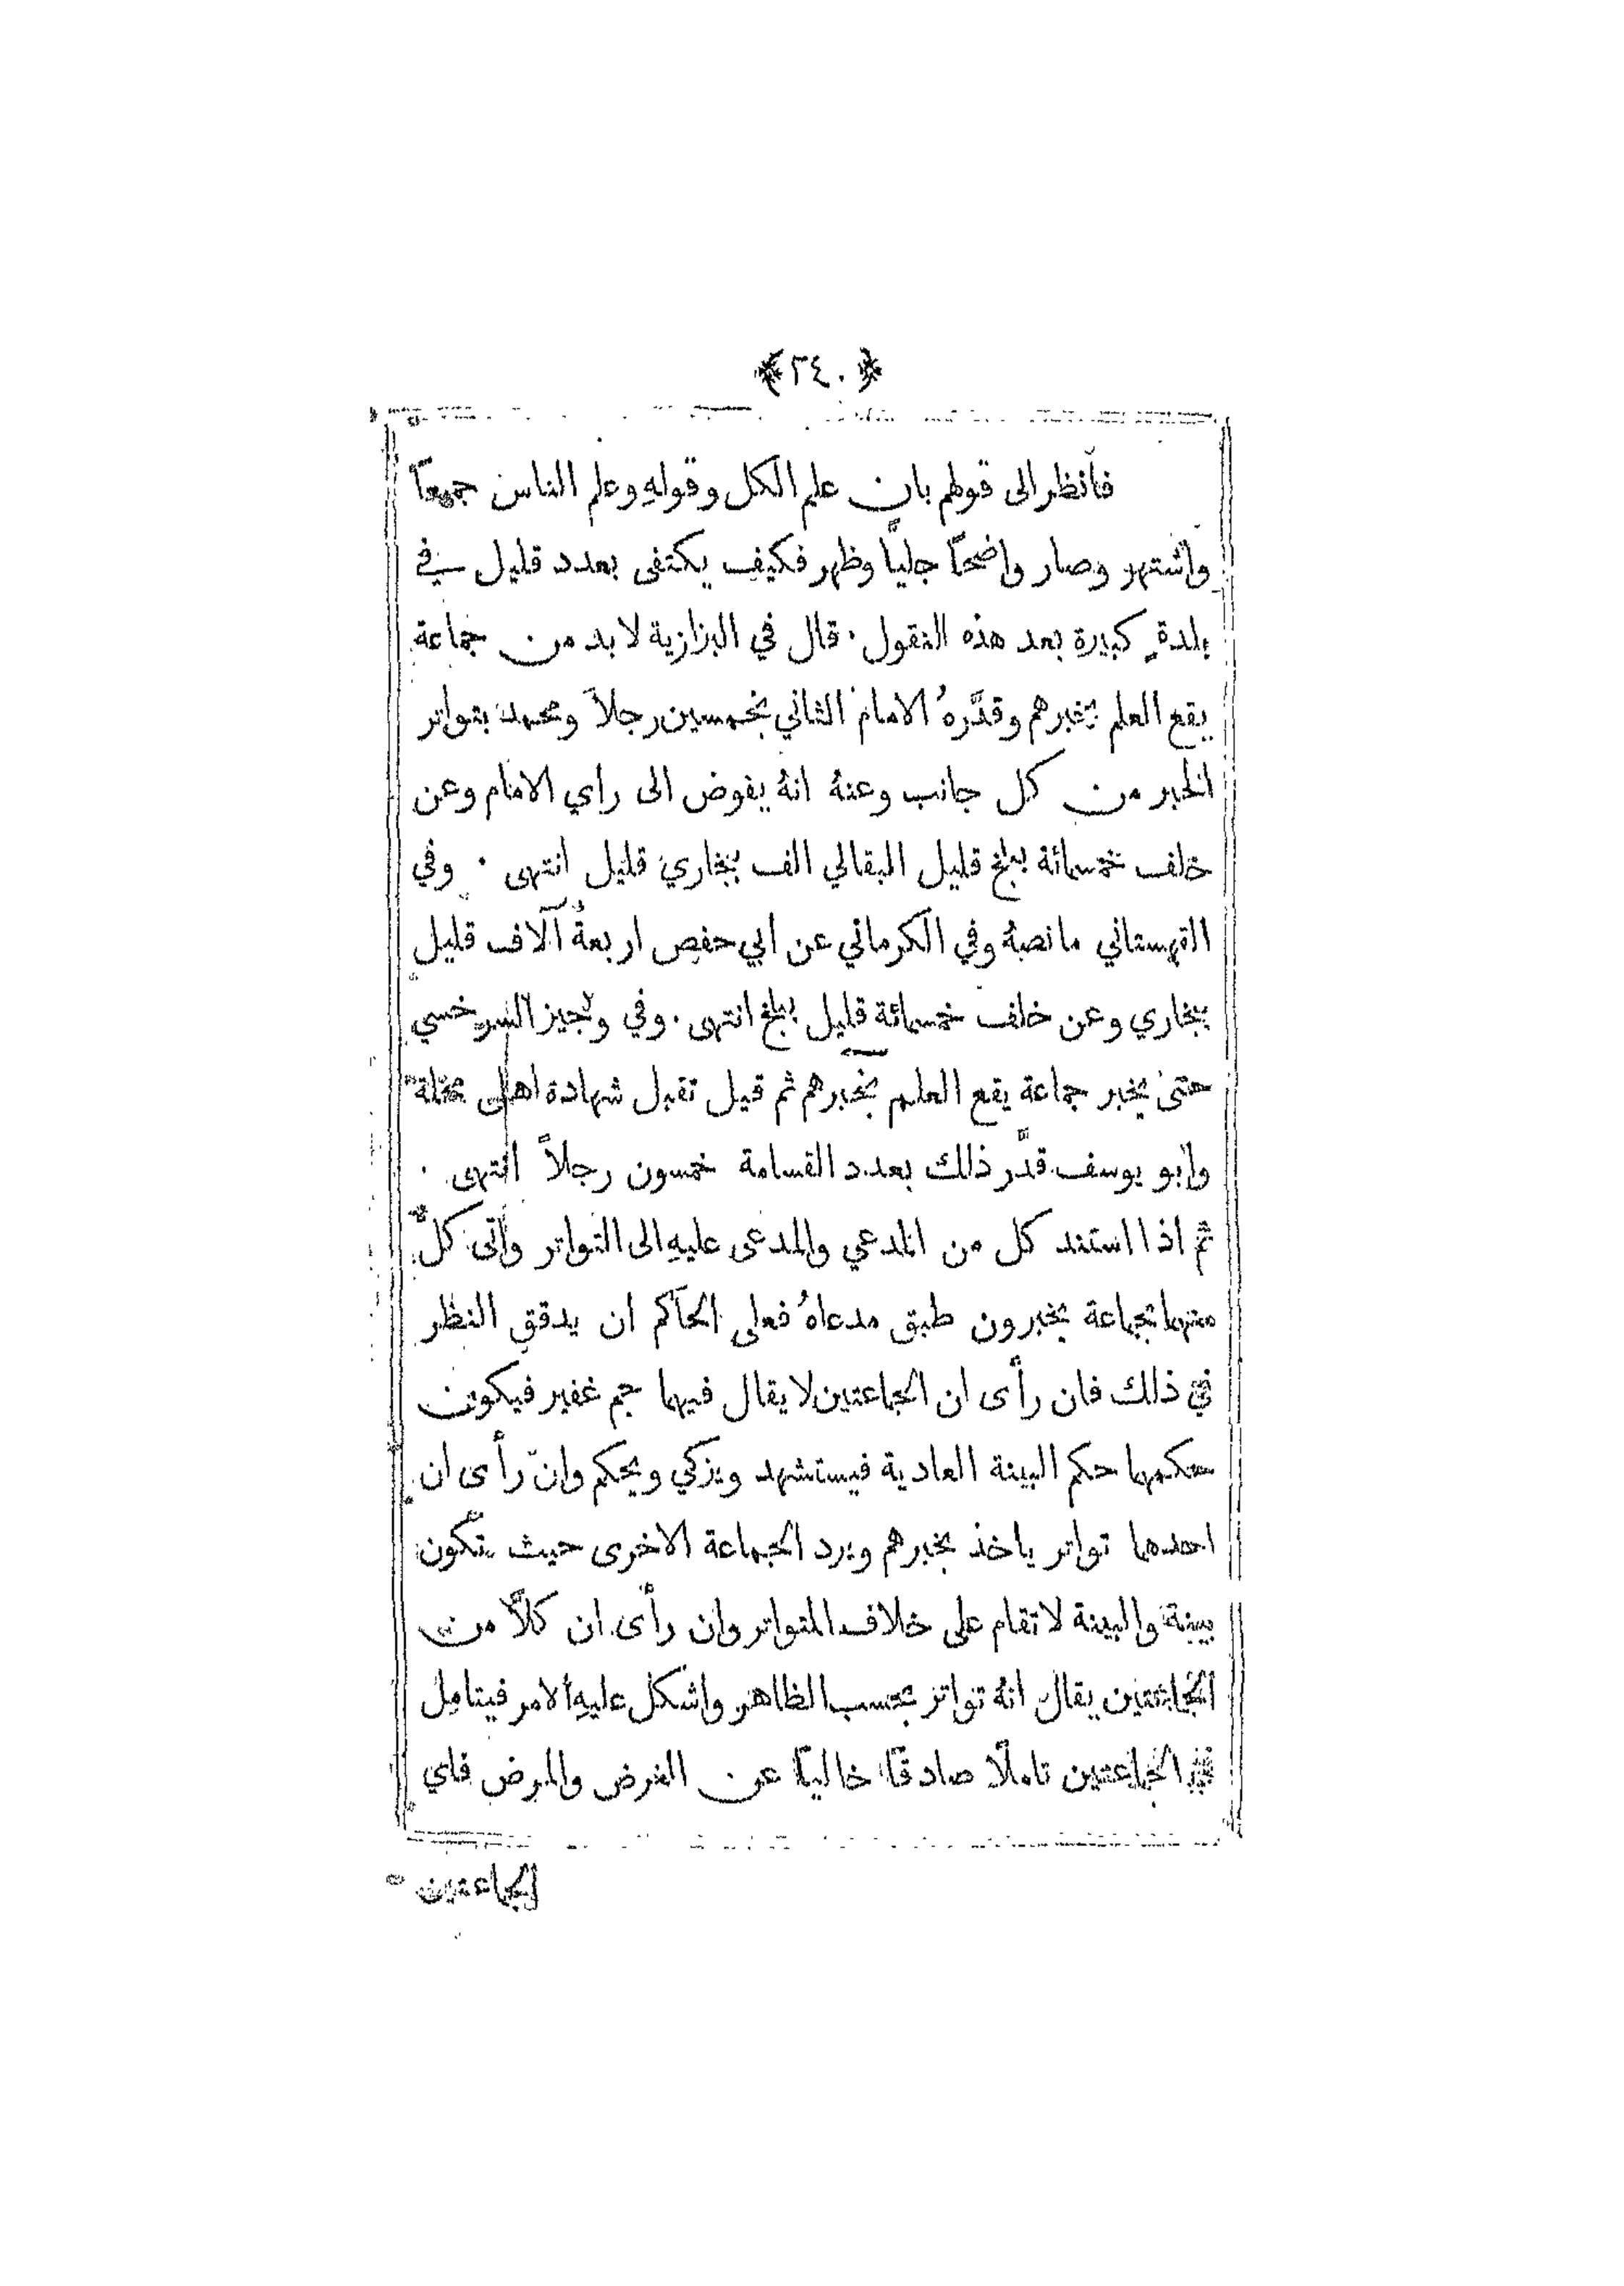 ﴿٢٤٠﴾
فانظر الى قولهم بان علم الكل وقولهِ وعلم الناس جميعاً
واشتهر وصار واضحاً جلياً وظهر فكيف يكتفى بعدد قليل في
بلدةٍ كبيرة بعد هذه النقول . قال في البزازية لا بد من جماعة
يقع العلم بخبرهم وقدَّرهُ الامام الثاني بخمسين رجلاً ومحمد بتواتر
الخبر من كل جانب وعنهُ انهُ يفوض الى راي الامام وعن
خلف خمسمائة ببلخ قليل البقالي الف ببخارى قليل انتهى . وفي
القهستاني ما نصهُ وفي الكرماني عن ابي حفص اربعةُ آلاف قليل
ببخاري وعن خلف خمسمائة قليل ببلخ انتهى . وفي وجيز السرخسي
حتى يخبر جماعة يقع العلم بخبرهم ثم قيل تقبل شهادة اهالى محلة
وابو يوسف قدَّر ذلك بعدد القسامة خمسون رجلاً انتهى .
ثم اذا استند كل من المدعي والمدعى عليهِ الى التواتر واتى كلٌّ
منهما بجماعة يخبرون طبق مدعاهُ فعلى الحاكم ان يدقق النظر
في ذلك فان رأى ان الجماعتين لا يقال فيهما جم غفير فيكون
حكمهما حكم البينة العادية فيستشهد ويزكي ويحكم وان رأى ان
احدهما تواتر ياخذ بخبرهم ويرد الجماعة الاخرى حيث تكون
بينة والبينة لا تقام على خلاف المتواتر وان رأى ان كلاًّ من
الجماعتين يقال انهُ تواتر بحسب الظاهر واشكل عليهِ الامر فيتامل
في الجماعتين تاملاً صادقاً خالياً عن الغرض والمرض فاي
الجماعتين